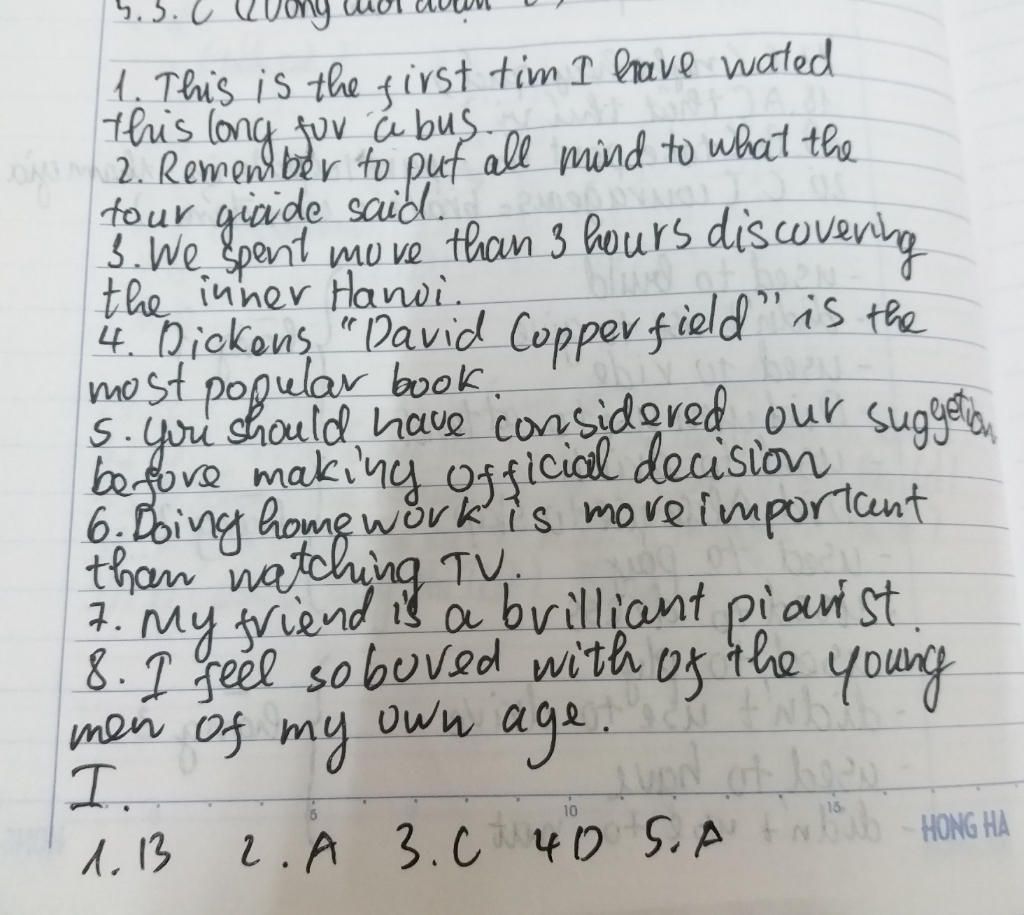 5.3. C (
1. This is the first tim I have wated
this long for a bus.
2. Remember to put all mind to what the
tour giade said.
3. We spent more than 3 hours discovering
the inner Hanoi.
4. Dickens "David Copperfield" is the
most popular book
5. you should have considered our suggetion
before making official decision
6. Doing homework is more important
than watching TV.
7. My friend is a brilliant pianist.
8. I feel so bored with of the young
men of my own age.
I.
5 10 15
1. B 2. A 3. C 4 D 5. A
HONG HA